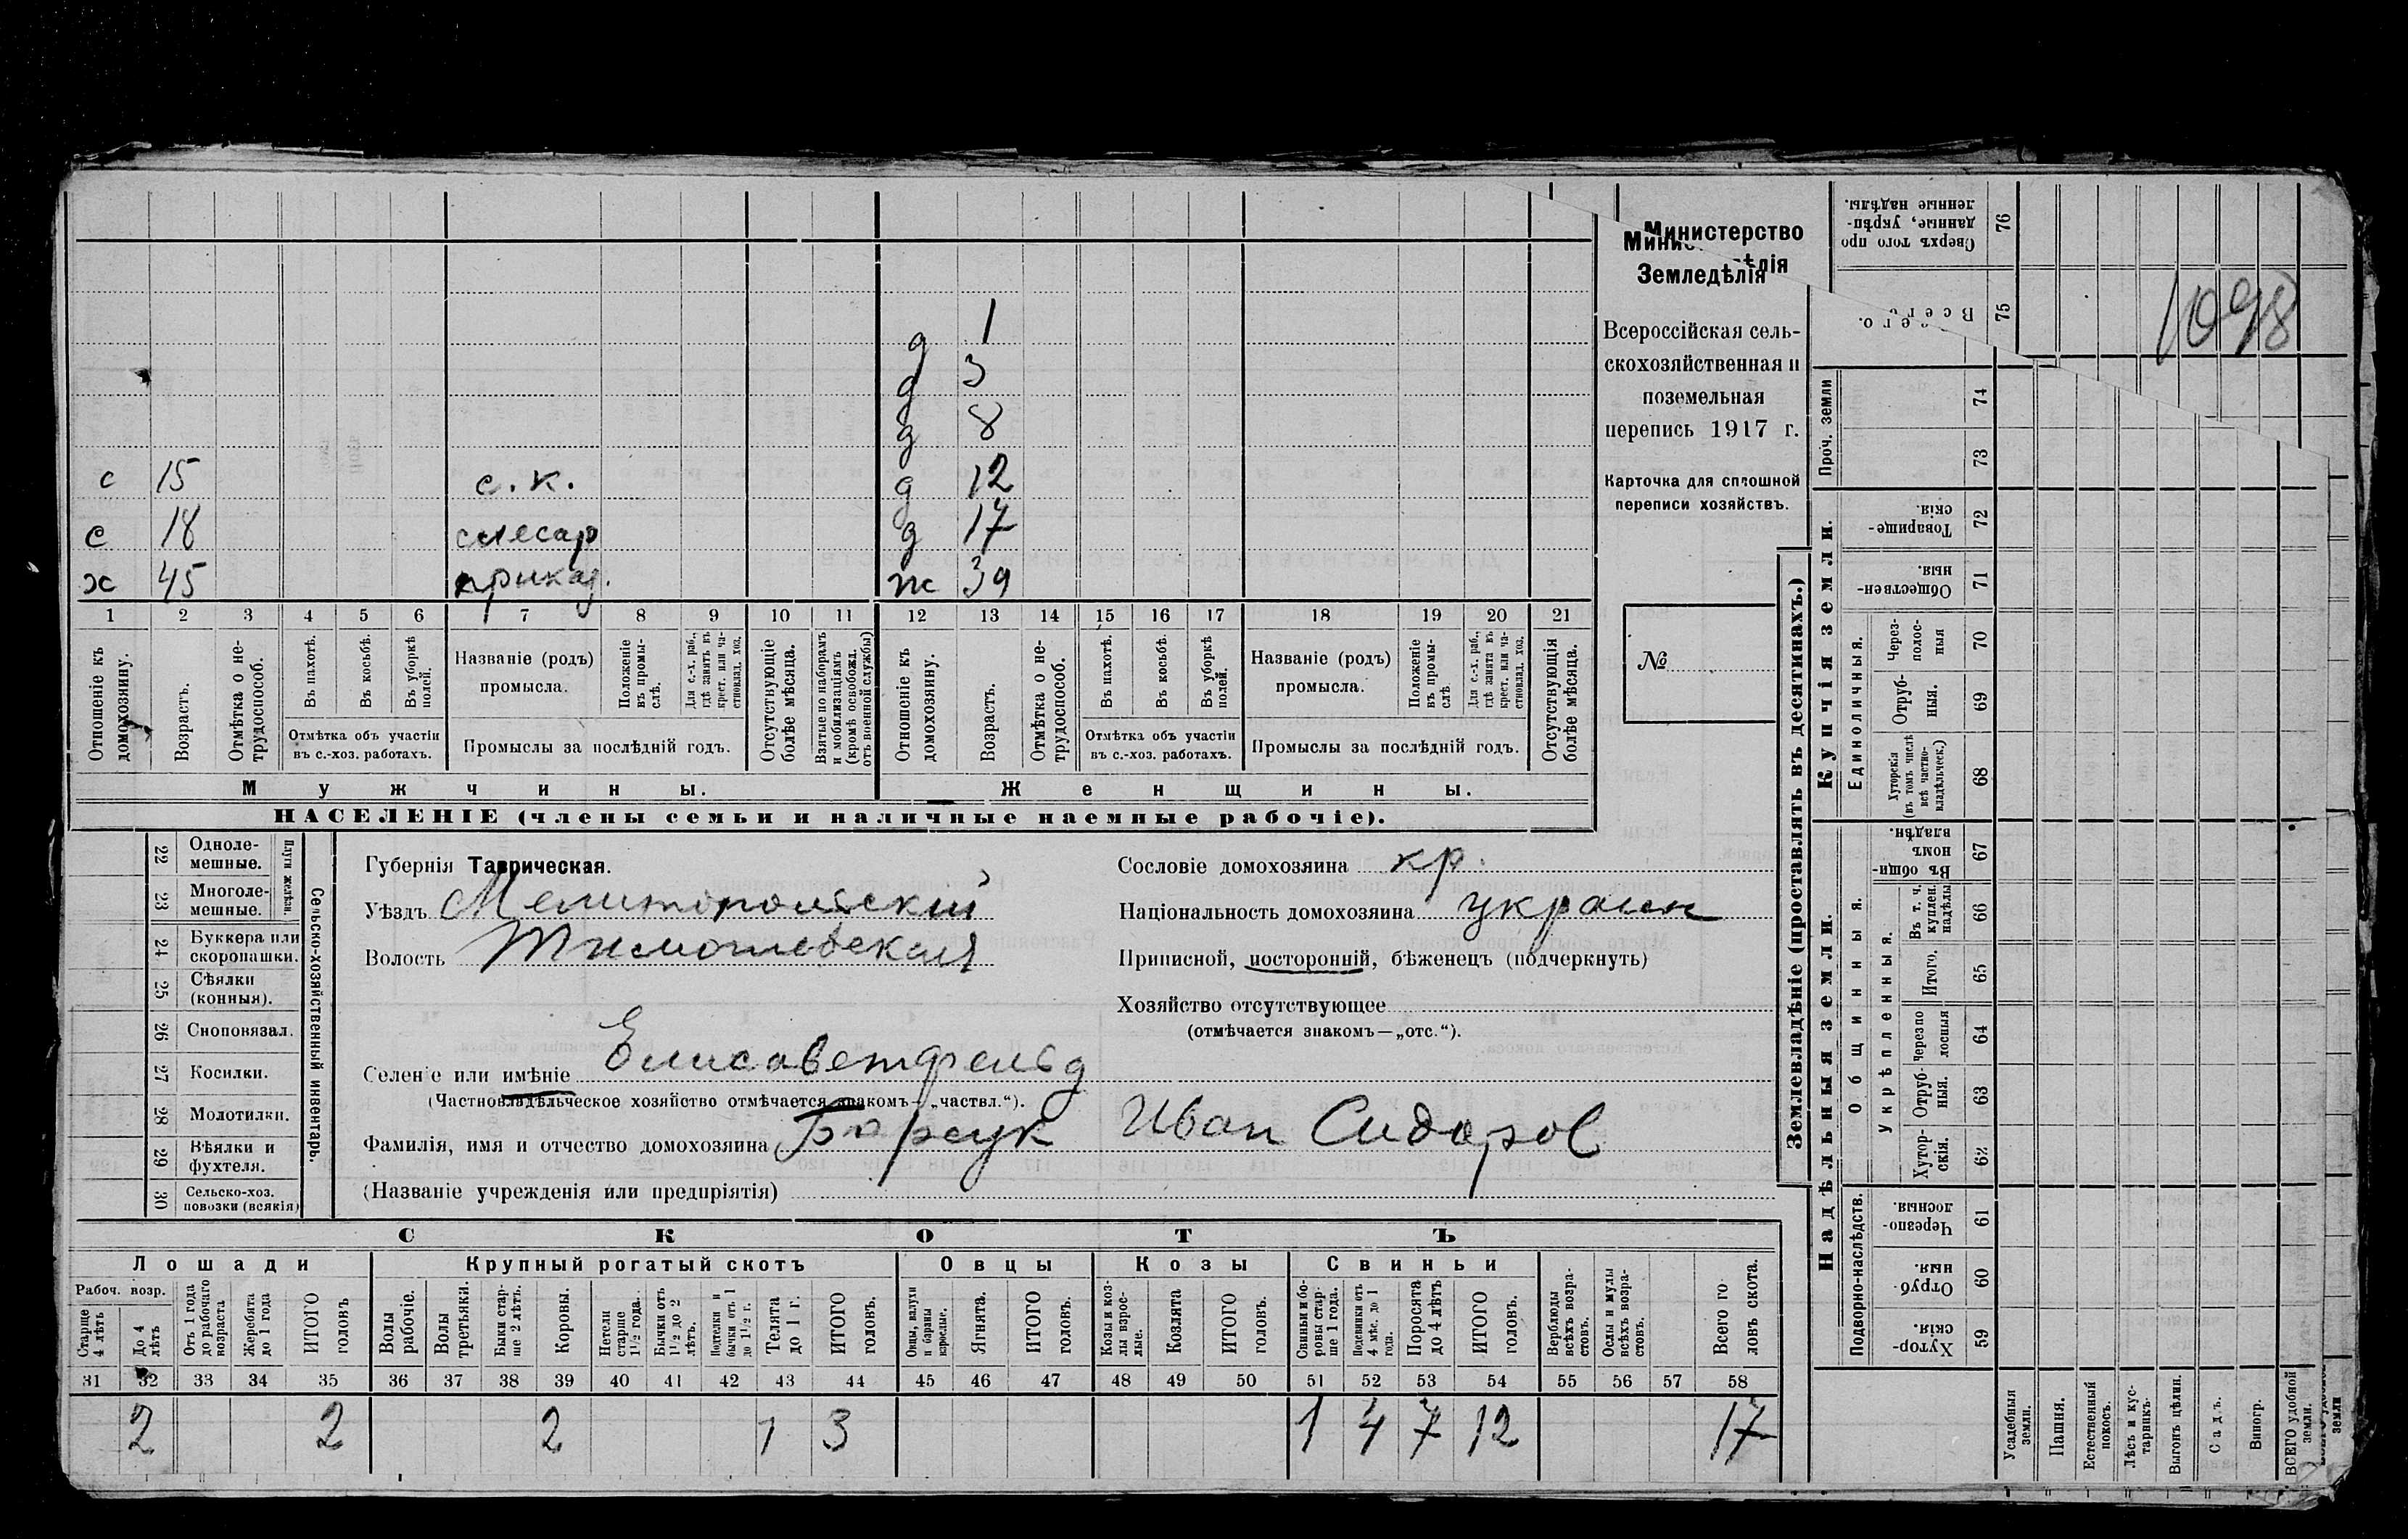 1098
Министерство
Земледѣлія
Всероссійская сель-
скохозяйственная и
поземельная
перепись 1917 г.
Карточка для сплошной
переписи хозяйствъ.
№
д 1
д 3
д 8
с 15 с. к. д 12
с 18 слесар д 17
х 45 приказ. ж 39
1 2 3 4 5 6 7 8 9 10 11 12 13 14 15 16 17 18 19 20 21
Отношеніе къ домохозяину.
Возрастъ.
Отмѣтка о не-трудоспособ.
Въ пахотѣ.
Въ косьбѣ.
Въ уборкѣ полей.
Отмѣтка объ участіи
въ с.-хоз. работахъ.
Названіе (родъ)
промысла.
Положеніе въ промы-слѣ.
Для с.-х. раб., гдѣ занятъ въ крест. или ча-стновлад. хоз.
Промыслы за послѣдній годъ.
Отсутствующіе болѣе мѣсяца.
Взятые по наборамъ и мобилизаціямъ (кромѣ освобожд. отъ военной службы)
Отношеніе къ домохозяину.
Возрастъ.
Отмѣтка о не-трудоспособ.
Въ пахотѣ.
Въ косьбѣ.
Въ уборкѣ полей.
Отмѣтка объ участіи
въ с.-хоз. работахъ.
Названіе (родъ)
промысла.
Положеніе въ промы-слѣ
Для с.-х. раб., гдѣ занята въ крест. или ча-стновлад. хоз.
Промыслы за послѣдній годъ.
Отсутствующія болѣе мѣсяца.
Мужчины. Женщины.
НАСЕЛЕНІЕ (члены семьи и наличные наемные рабочіе).
Сельско-хозяйственный инвентарь.
Плуги желѣзн.
22 Одноле-мешные.
23 Многоле-мешные.
24 Буккера или скоропашки.
25 Сѣялки (конныя).
26 Сноповязал.
27 Косилки.
28 Молотилки.
29 Вѣялки и фухтеля.
30 Сельско-хоз. повозки (всякія)
Губернія Таврическая.
Уѣздъ Мелитопольскій
Волость Тимошевская
Сословіе домохозяина кр.
Національность домохозяина украин
Приписной, посторонній, бѣженецъ (подчеркнуть)
Хозяйство отсутствующее
(отмѣчается знакомъ—„отс.“).
Селеніе или имѣніе Елисаветфельд
(Частновладѣльческое хозяйство отмѣчается знакомъ—„частвл.“).
Фамилія, имя и отчество домохозяина Барсук Иван Сидоров
(Названіе учрежденія или предпріятія)
СКОТЪ
Лошади Крупный рогатый скотъ Овцы Козы Свиньи
Рабоч. возр.
Старше 4 лѣтъ
До 4 лѣтъ
Отъ 1 года до рабочаго возраста
Жеребята до 1 года
ИТОГО головъ
Волы рабочіе.
Волы третьяки.
Быки стар-ше 2 лѣтъ.
Коровы.
Нетели старше 1 1/2 года.
Бычки отъ 1 1/2 до 2 лѣтъ.
Подтелки и бычки отъ 1 до 1 1/2 г.
Телята до 1 г.
ИТОГО головъ.
Овцы, валухи и бараны взрослые.
Ягнята.
ИТОГО головъ.
Козы и коз-лы взрос-лые.
Козлята
ИТОГО головъ.
Свиньи и бо-ровы стар-ше 1 года.
Подсвинки отъ 4 мѣс. до 1 года.
Поросята до 4 лѣтъ
ИТОГО головъ.
Верблюды всѣхъ возра-стовъ.
Ослы и мулы всѣхъ возра-стовъ.
Всего го-ловъ скота.
31 32 33 34 35 36 37 38 39 40 41 42 43 44 45 46 47 48 49 50 51 52 53 54 55 56 57 58
2 2 2 1 3 1 4 7 12 17
Землевладѣніе (проставлять въ десятинахъ.)
Надѣльныя земли. Купчія земли.
Подворно-наслѣдств.
Общинныя.
Укрѣпленныя.
Единоличныя.
Проч. земли
Хутор-скія. 59
Отруб-ныя. 60
Черезпо-лосныя. 61
Хутор-скія. 62
Отруб-ныя. 63
Черезпо-лосныя 64
Итого. 65
Въ т. ч. куплен. надѣлы 66
Въ общин-номъ владѣн. 67
Хуторскія (въ томъ числѣ всѣ частно-владѣльческ.) 68
Отруб-ныя. 69
Через-полос-ныя 70
Обществен-ныя. 71
Товарище-скія. 72
73
74
Всего. 75
Сверхъ того про-данные, укрѣп-ленные надѣлы. 76
Усадебныя земли.
Пашня.
Естественный покосъ.
Лѣсъ и кус-тарникъ.
Выгонъ цѣлин.
Садъ.
Виногр.
ВСЕГО удобной земли.